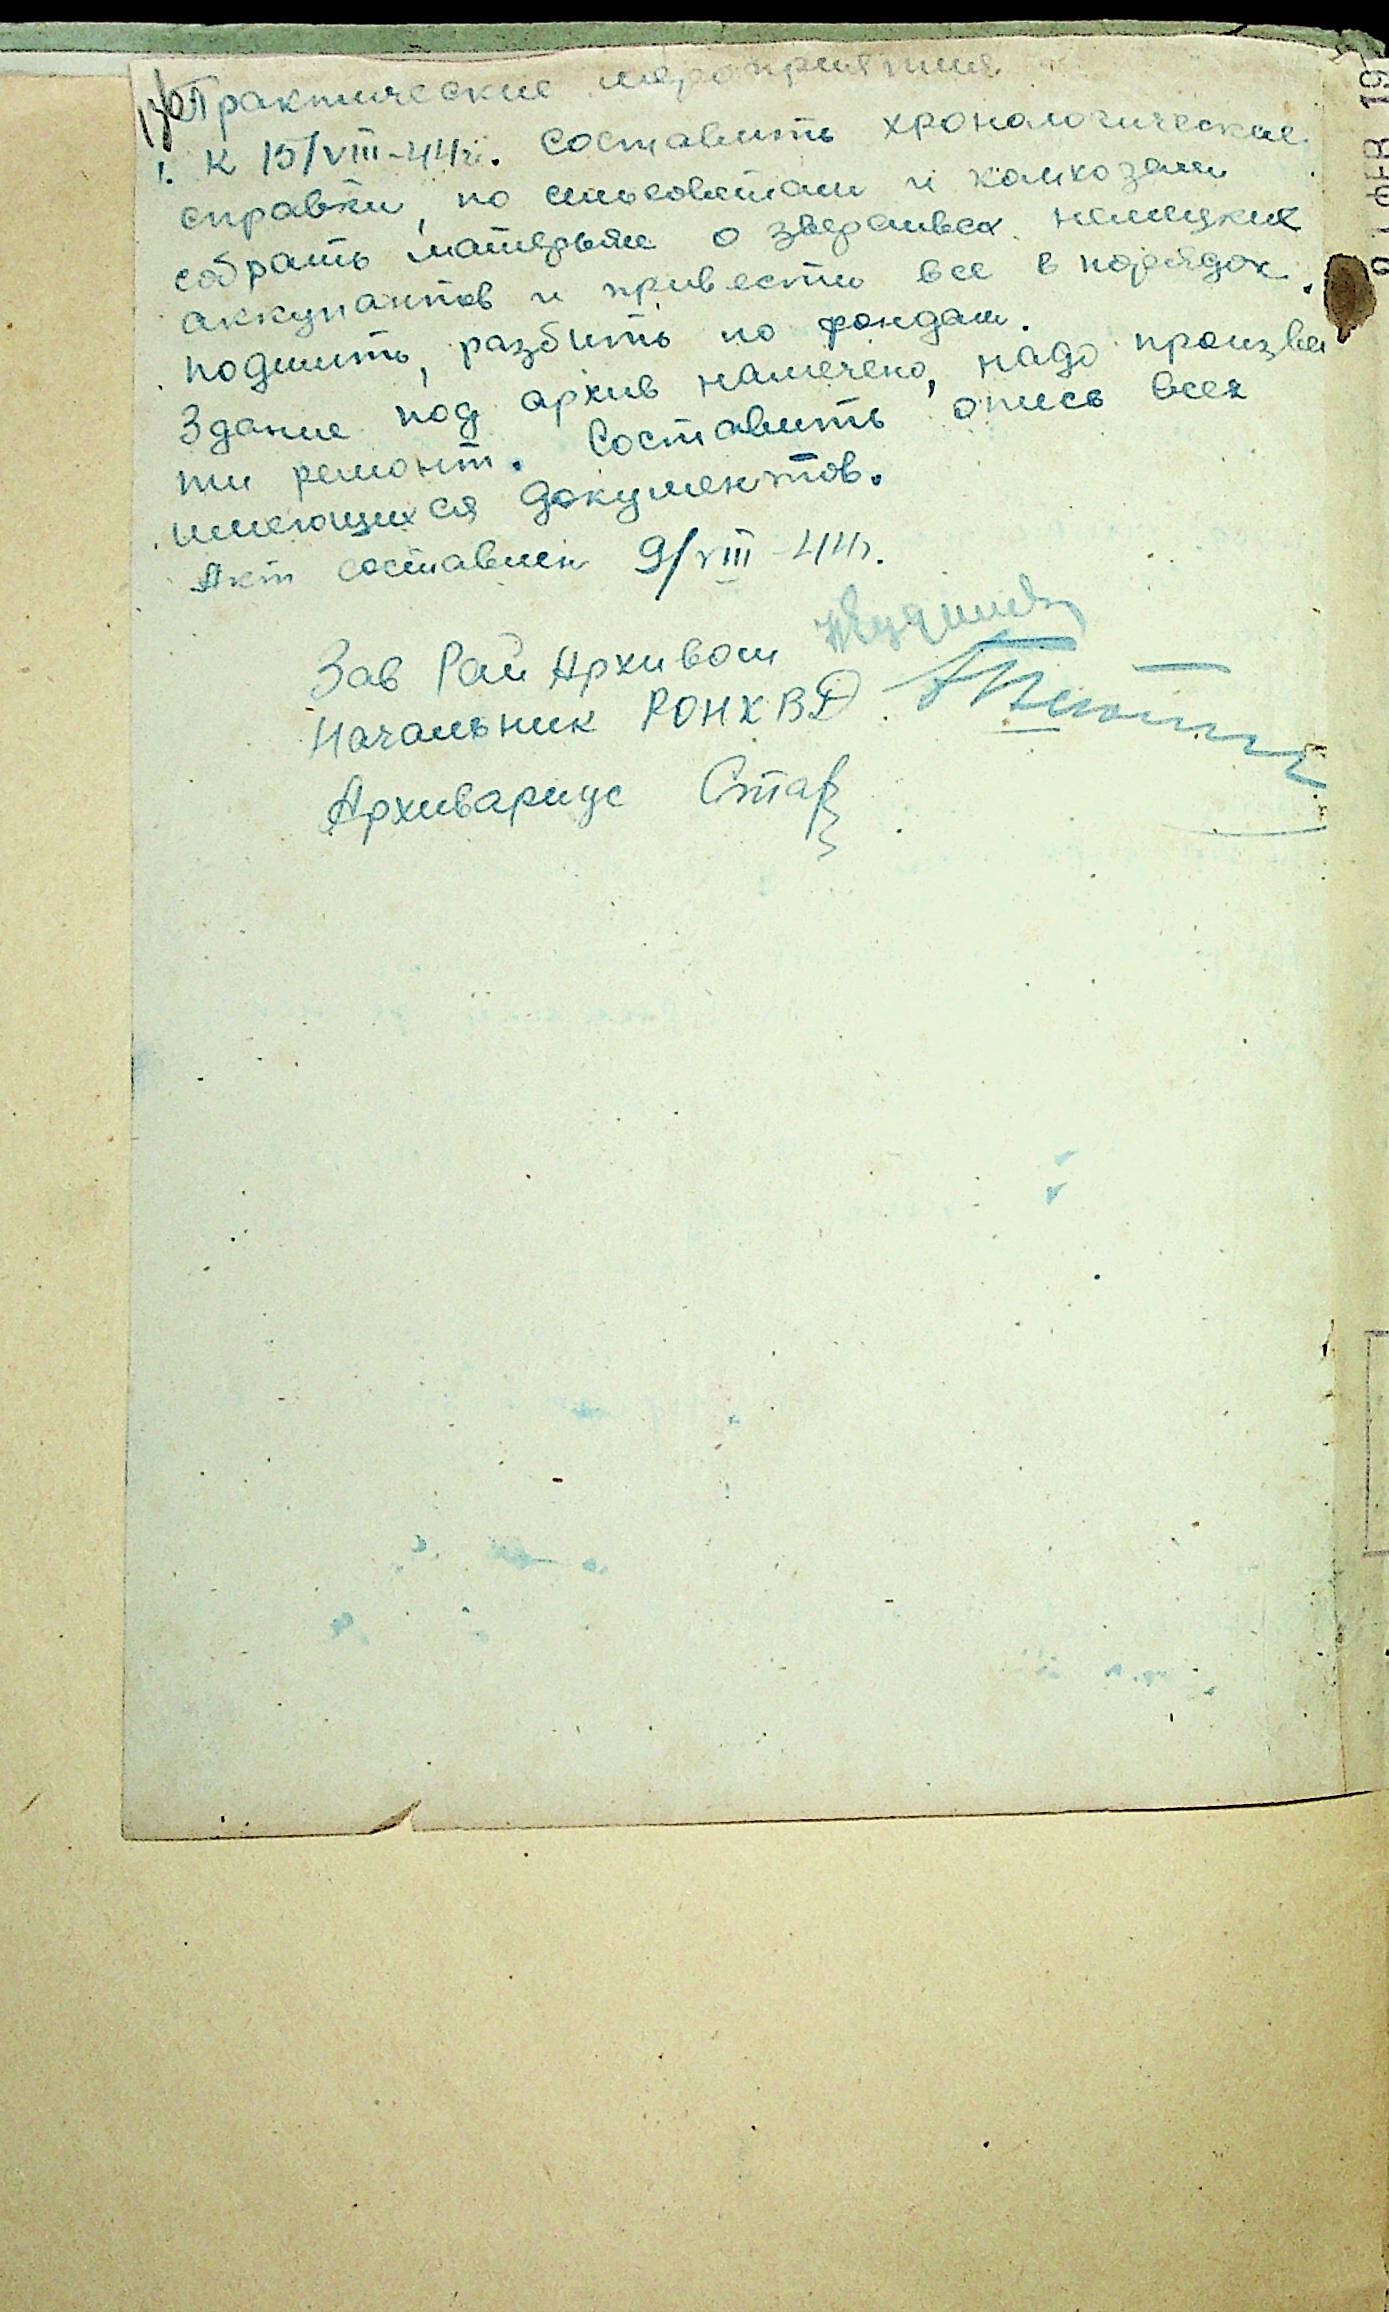 Практические мероприятия
1. К 15/VIII-44г. Составить хронологические
справки, по сельсоветам и колхозам
собрать матерьял о зверствах немецких
аккупантов и привести все в порядок.
подшить, разбить по фондам.
Здание под архив намечено, надо произвес
ти ремонт. Составить опись всех
имеющихся документов.
Акт составлен 9/VIII-44г.
Зав Рай Архивом
Начальник РОНКВД
Архивариус